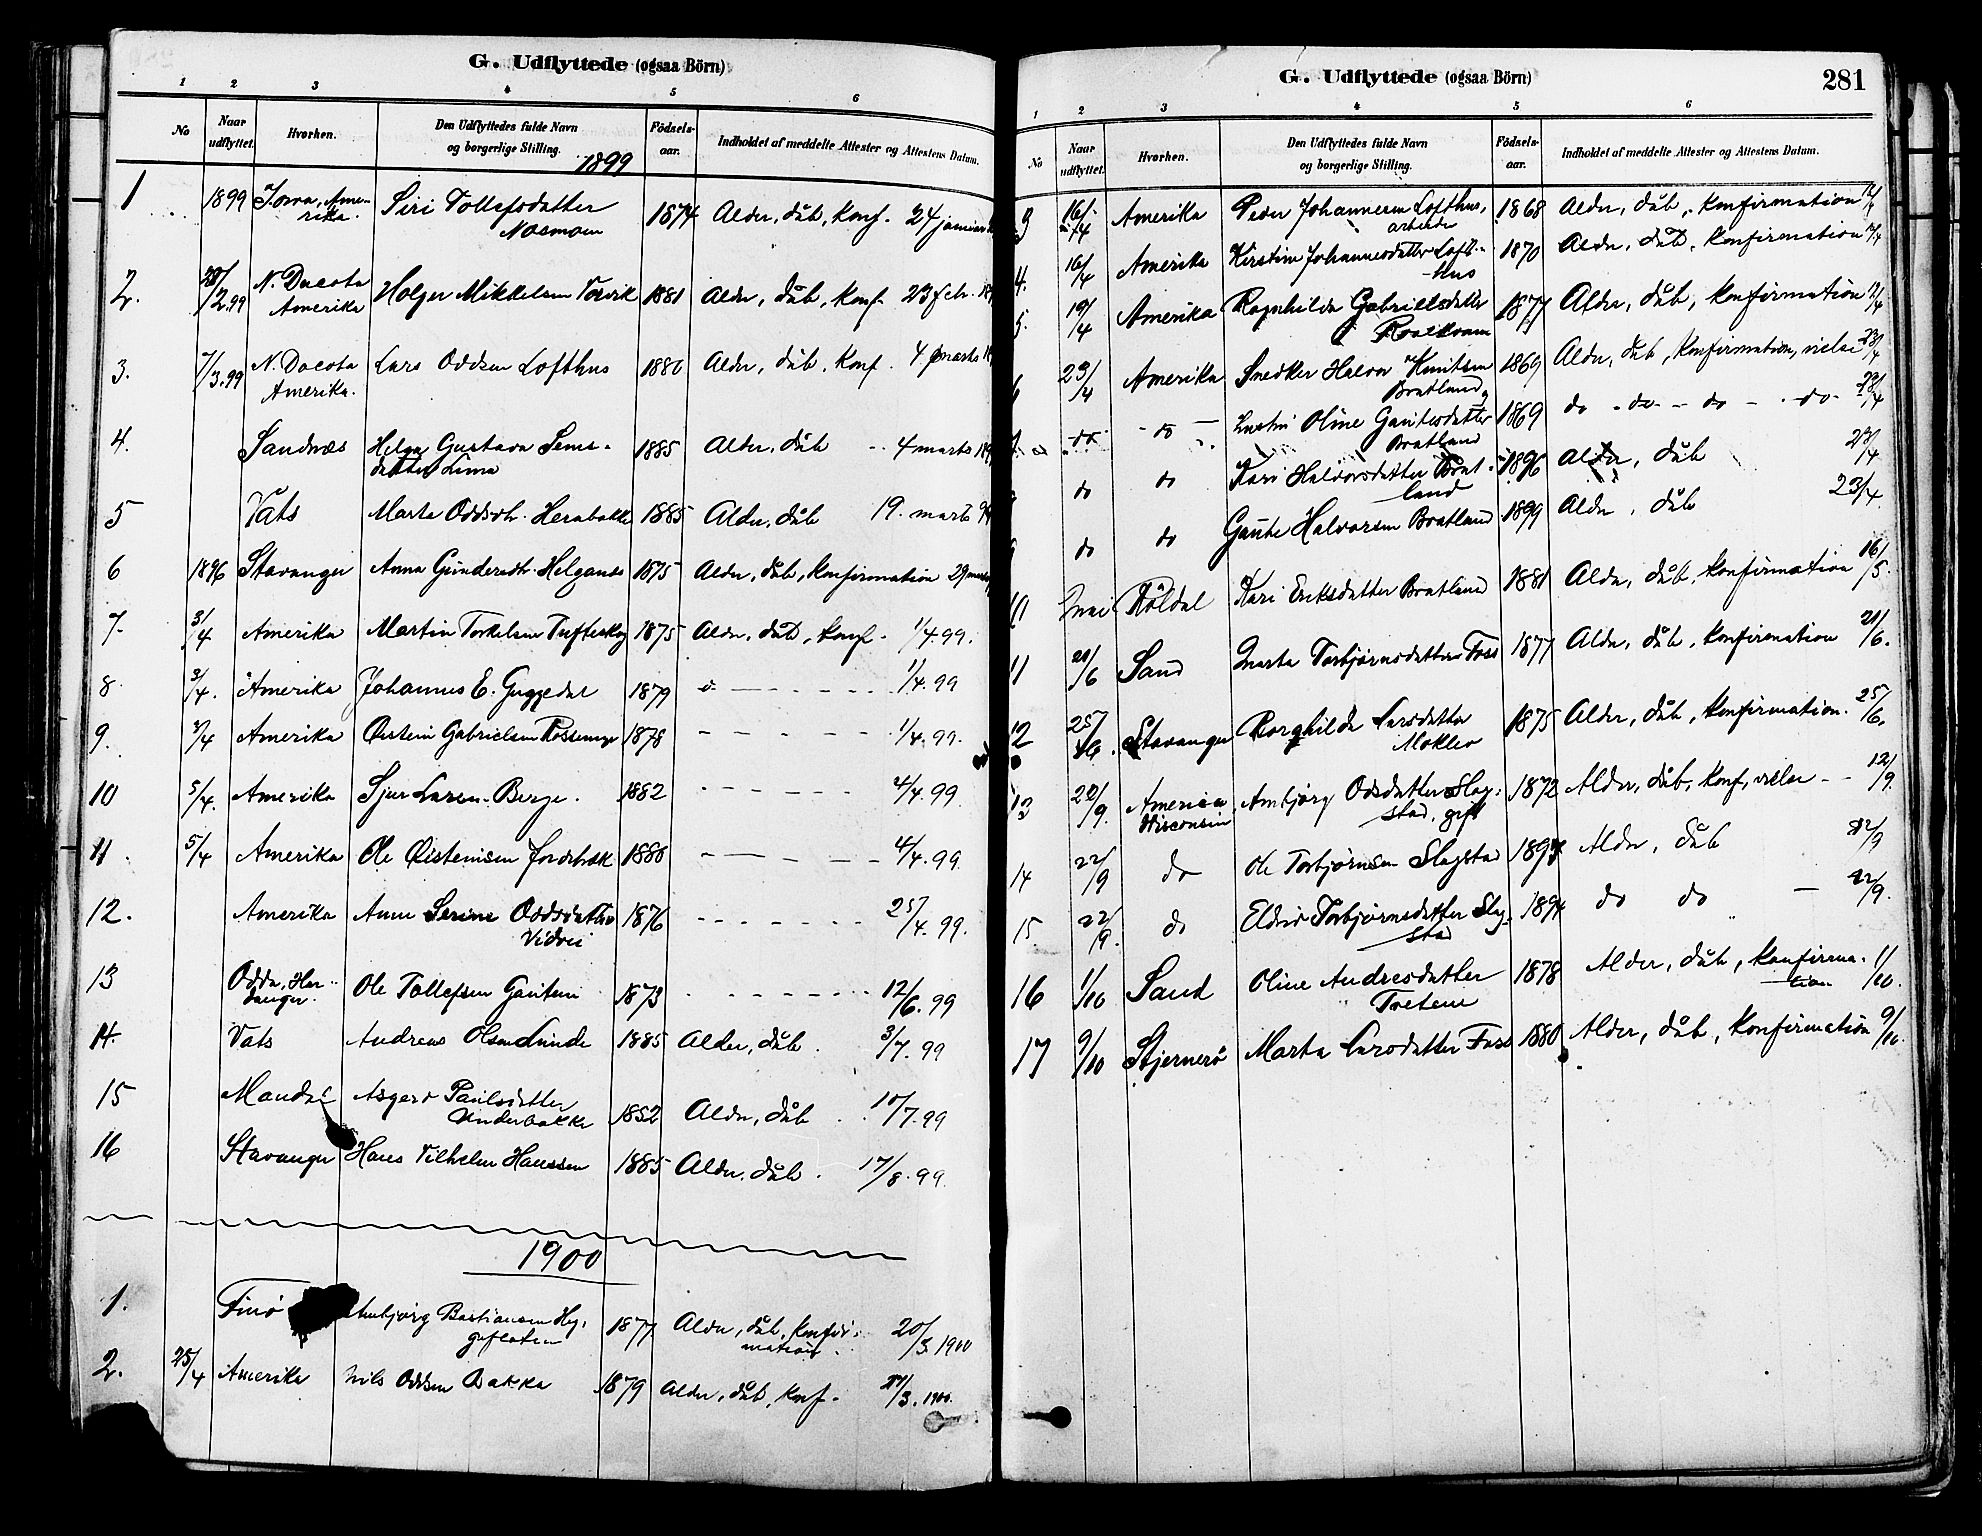 G. Udflyttede (ogsaa Börn)
1 2 3 4 5 6
No Naar udflyttet. Hvorhen. Den Udflyttedes fulde Navn og borgerlige Stilling. Födsels-aar. Indholdet af meddelte Attester og Attestens Datum.
1899
1 1899 Iowa, Ame- Siri Tollefsdatter 1874 Alder, dåb, konf. 24 januar
rika.
2. 28/2.99 N. Dacota Holger Mikkelsen 1881 Alder, dåb, konf. 23 febr.
Amerika
3. 7/3.99 N. Dacota Lars Oddsen Lofthus 1880 Alder, dåb, konf. 4 marts
Amerika.
4. Sandnæs Helga Gustava Sems- 1885 Alder, dåb - 4 marts
datter Lima
5 Vats Marta Oddsdtr. Herabakke 1885 Alder, dåb 19. marts
6 1896 Stavanger Anna Gundersdtr. Helganes 1875 Alder, dåb, konfirmation 29 marts
7. 3/4 Amerika Martin Torkelsen Tufteskog 1875 Alder, dåb, konf. 1/4.99.
8. 3/4. Amerika Johannes E. Guggedal 1879 1/4.99
9. 3/4 Amerika Østein Gabrielsen 1878 1/4.99.
10 5/4. Amerika Sjur Larsen Berge. 1882 4/4.99.
11. 5/4 Amerika Ole Østeinsen 1880 4/4.99.
12. Amerika Anne Serine Oddsdatter 1876 25/4.99.
13 Odda, Har- Ole Tollefsen 1873 12/6.99
danger.
14. Vats Andreas Olsen Lunde 1885 Alder, dåb. 3/7.99
15 Mandal Asgerd Paulsdatter 1852 Alder, dåb 10/7.99
Underbakke
16 Stavanger Hans Vilhelm Hanssen 1885 Alder, dåb. 17/8.99.
1900
1. Finö Ambjørg Bastiansen 1877 Alder, dåb, konfir- 20/3.1900
mation.
2. 25/4 Amerika Nils Oddsen Bakka 1879 Alder, dåb, konf. 27/3.1900.
G. Udflyttede (ogsaa Börn)
281
1 2 3 4 5 6
No Naar udflyttet. Hvorhen. Den Udflyttedes fulde Navn og borgerlige Stilling. Födsels-aar. Indholdet af meddelte Attester og Attestens Datum.
3 16/4 Amerika Peder Johannesen Lofthus, 1868 Alder, dåb, konfirmation
arbeider
4. 16/4 Amerika Kirstine Johannesdatter Loft- 1870 Alder, dåb, konfirmation
hus
5. 19/4 Amerika Ragnhilda Gabrielsdatter 1877 Alder, dåb, konfirmation
Roalkvam
6 23/4 Amerika Snedker Halvor Knutsen 1869 Alder, dåb, konfirmation, vielse 23/4
Bratland
do do Oline Gautesdatter 1869 do - do - do - do 23/4
Bratland
do do Kari Halvorsdatter Brat- 1896 Alder, dåb 23/4
land
do do Gaute Halvorsen Bratland 1899 Alder, dåb 23/4.
10 mai Röldal Kari Eriksdatter Bratland 1881 Alder, dåb, konfirmation 16/5.
11 21/6 Sand Marta Torbjørnsdatter Foss 1877 Alder, dåb, konfirmation 21/6.
12 25/6. Stavanger Borghilda Larsdatter 1875 Alder, dåb, konfirmation. 25/6.
Mokleiv
13 22/9. America Ambjørg Odsdatter Slag- 1872 Alder, dåb, konf, vielse - - 12/9.
Wisconsin stad, gift
14 22/9 do Ole Torbjørnsen Slagstad Alder, dåb 12/9
15. 22/9. do Eldrid Torbjørnsdatter Slag- 1894 do do - 12/9.
stad
16 1/10 Sand Oline Andresdatter 1878 Alder, dåb, konfirma- 1/10.
Tvetene tion
17 9/10 Stjernerö Marta Larsdatter Foss 1880 Alder, dåb, konfirmation 9/10.